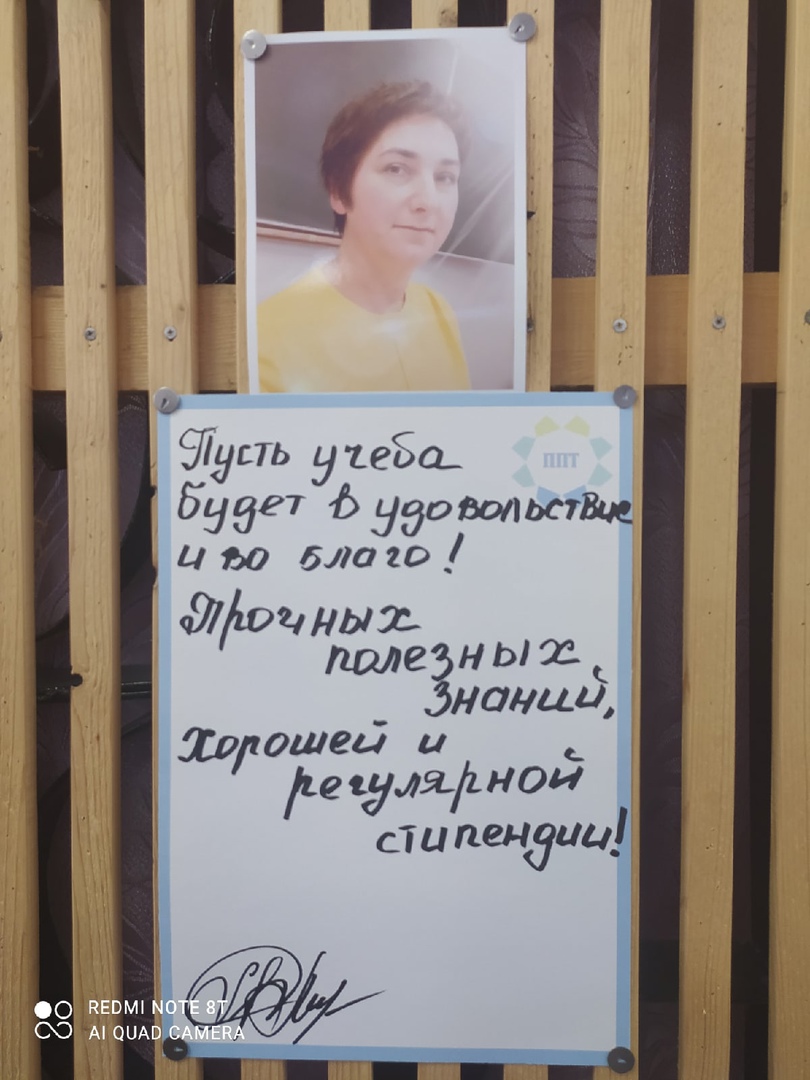 ППТ
Пусть учеба
будет в удовольствие
и во благо!
Прочных
полезных
знаний,
хорошей и
регулярной
стипендии!
REDMI NOTE 8T
AI QUAD CAMERA